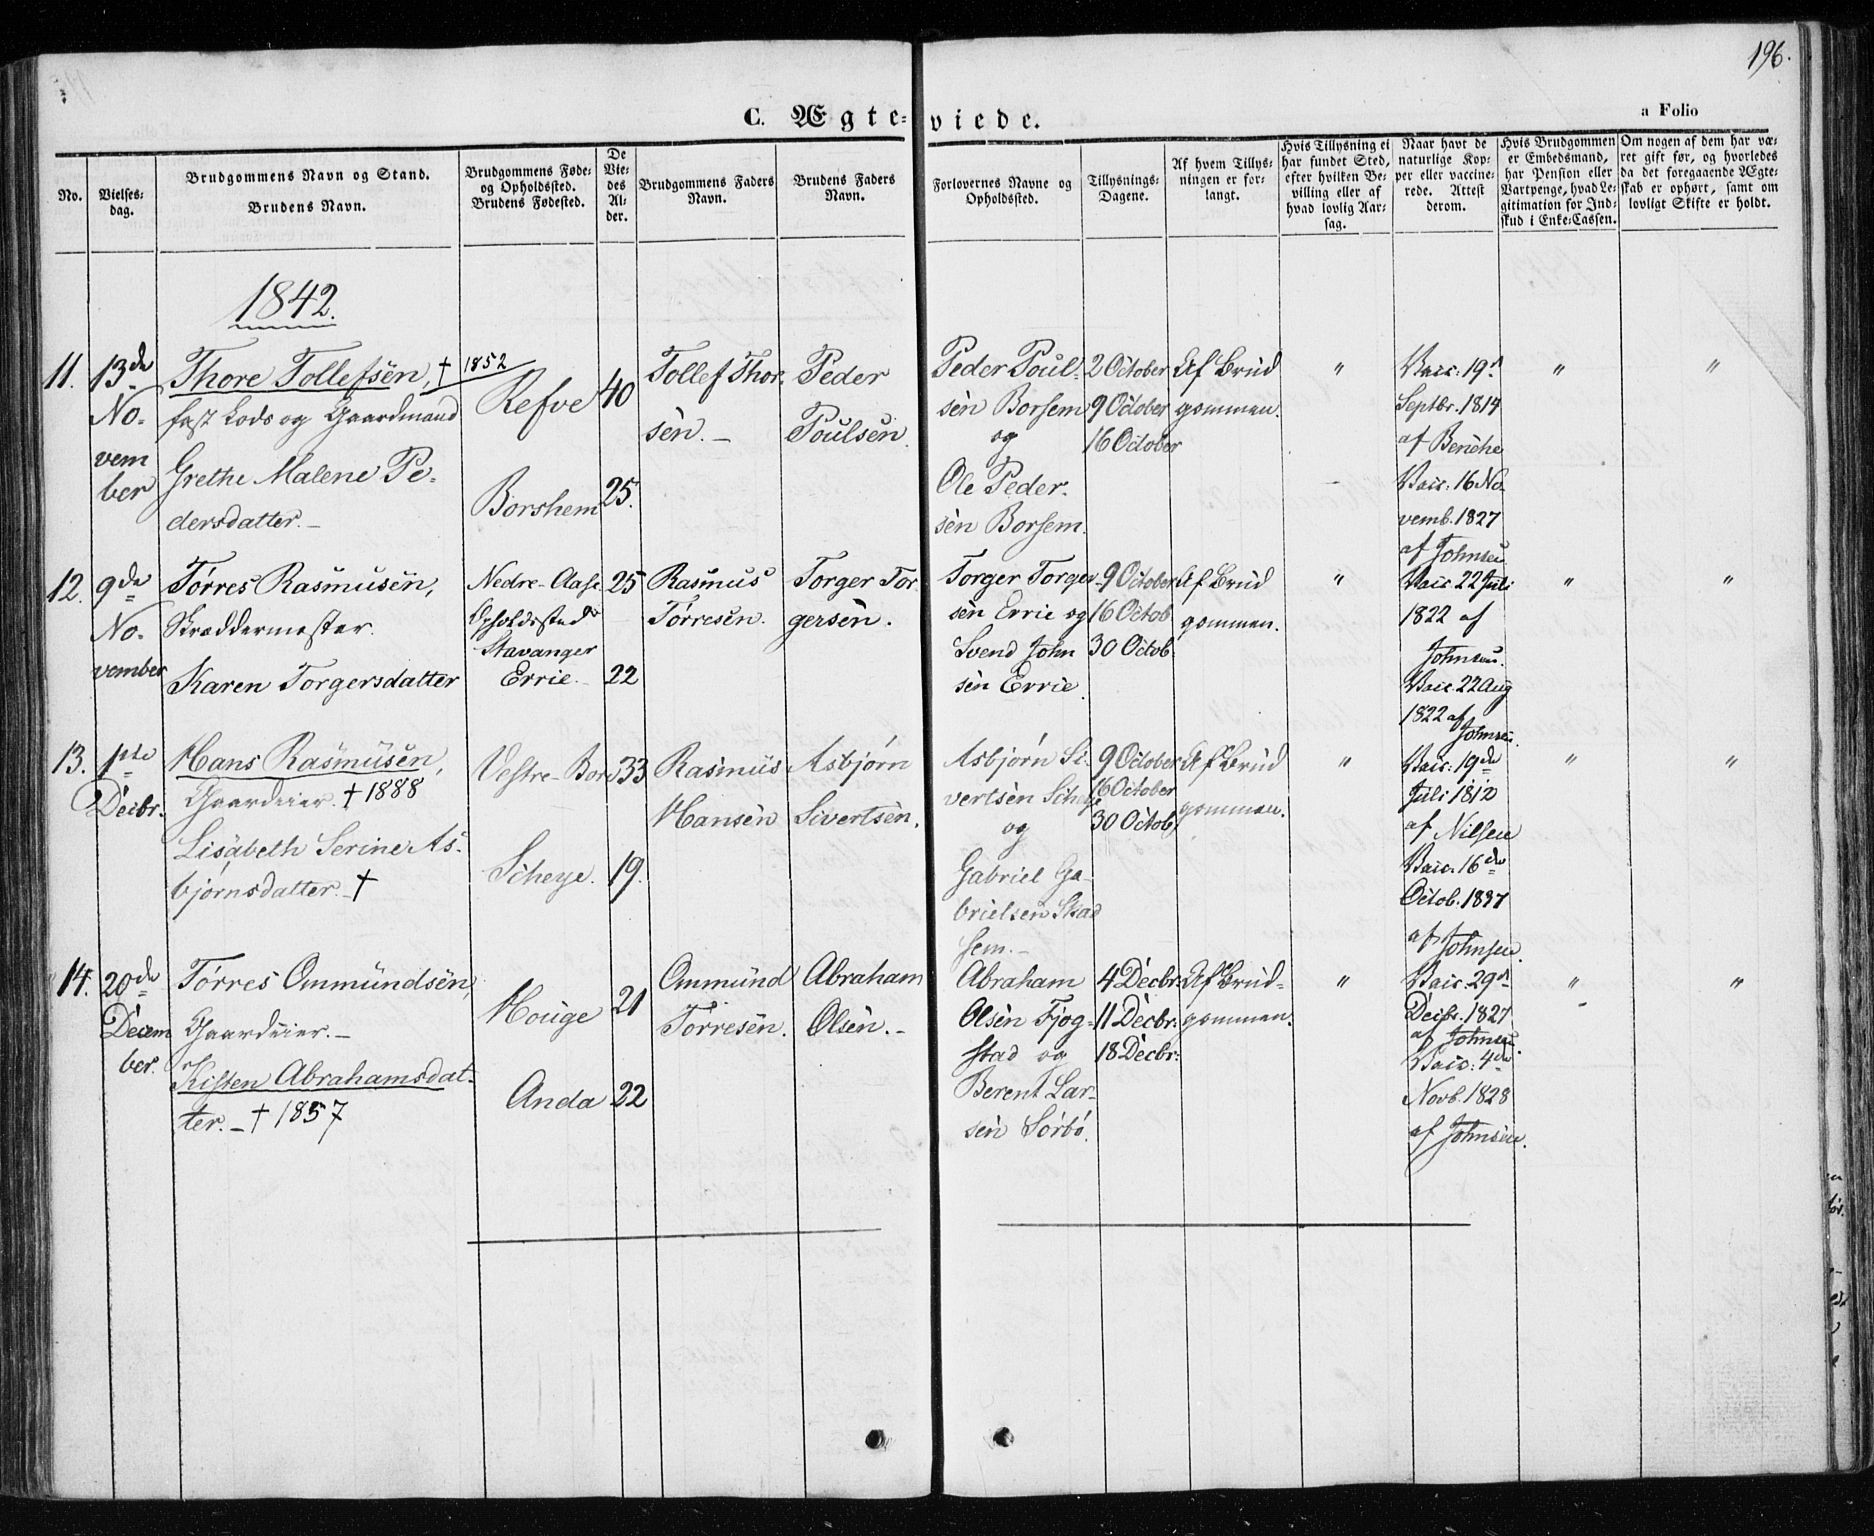 196.
C. Ægte=viede.
a Folio
No.
Vielses-
dag.
Brudgommens Navn og Stand.
Brudens Navn.
Brudgommens Føde-
og Opholdssted.
Brudens Fødested.
De
Vie-
des
Al-
der.
Brudgommens Faders
Navn.
Brudens Faders
Navn.
Forlovernes Navne og
Opholdssted.
Tillysnings-
Dagene.
Af hvem Tillys-
ningen er for-
langt.
Hvis Tillysning ei
har fundet Sted,
efter hvilken Be-
villing eller af
hvad lovlig Aar-
sag.
Naar havt de
naturlige Kop-
per eller vaccine-
rede. Attest
derom.
Hvis Brudgommen
er Embedsmand,
har Pension eller
Vartpenge, hvad Le-
gitimation for Ind-
skud i Enke-Cassen.
Om nogen af dem har væ-
ret gift før, og hvorledes
da det foregaaende Ægte-
skab er ophørt, samt om
lovligt Skifte er holdt.
1842.
11.
13de
No-
vem
ber
Thore Tollefsen, † 1852
fast Lods og Gaardmand
Grethe Malene Pe-
dersdatter.-
Refve
Borshem
40
25.
Tollef Thor-
sen.-
Peder
Poulsen.
Peder Poul-
sen Borsem
og
Ole Peder-
sen Borsem.
2 October
9 October
16 October
Af Brud
gommen.
"
Vacc: 19d
Septbr. 1814
af Beriche
Vacc: 16 No-
vemb. 1827
af Johnsen
"
"
12.
9de
No-
vember
Tørres Rasmusen,
Skræddermester.
Karen Torgersdatter
Nedre-Aase
Opholdssted
Stavanger
Errie.-
25
22
Rasmus
Tørresen.
Torger Tor-
gersen.
Torger Torger-
sen Errie og
Svend John
sen Errie.
9 October
16 Octob
30 Octob
Af Brud
gommen.
"
Vacc 22 Juli
1822 af
Johnsen.
Vacc. 22 Aug
1822 af
Johnsen.
"
"
13.
1ste
Decbr.
Hans Rasmusen,
Gaardeier. † 1888
Lisabeth Serine As-
bjørnsdatter.- †
Vestre-Bor
Scheye.
33
19.
Rasmus
Hansen
Asbjørn
Sivertsen.
Asbjørn Si-
vertsen Scheye
og
Gabriel Ga-
brielsen Skad
sem.-
9 October
16 October
30 Octob
Af Brud
gommen.
"
Vacc: 19de
Juli 1812
af Nilsen
Vacc. 16de
Octob. 1837
af Johnsen.
"
"
14.
20de
Decem
ber.
Tørres Ommundsen,
Gaardeier.-
Kisten Abrahamsdat-
ter.- † 1857
Houge
Anda
21
22
Ommund
Torresen.
Abraham
Olsen.-
Abraham
Olsen Fjog-
stad og
Berent Lar-
sen Sørbø.
4 Decbr:
11 Decbr:
18 Decbr:
Af Brud-
gommen.
"
Vacc. 29d
Decbr. 1827
af Johnsen.
Vacc: 4de
Novb. 1828
af Johnsen.
"
"